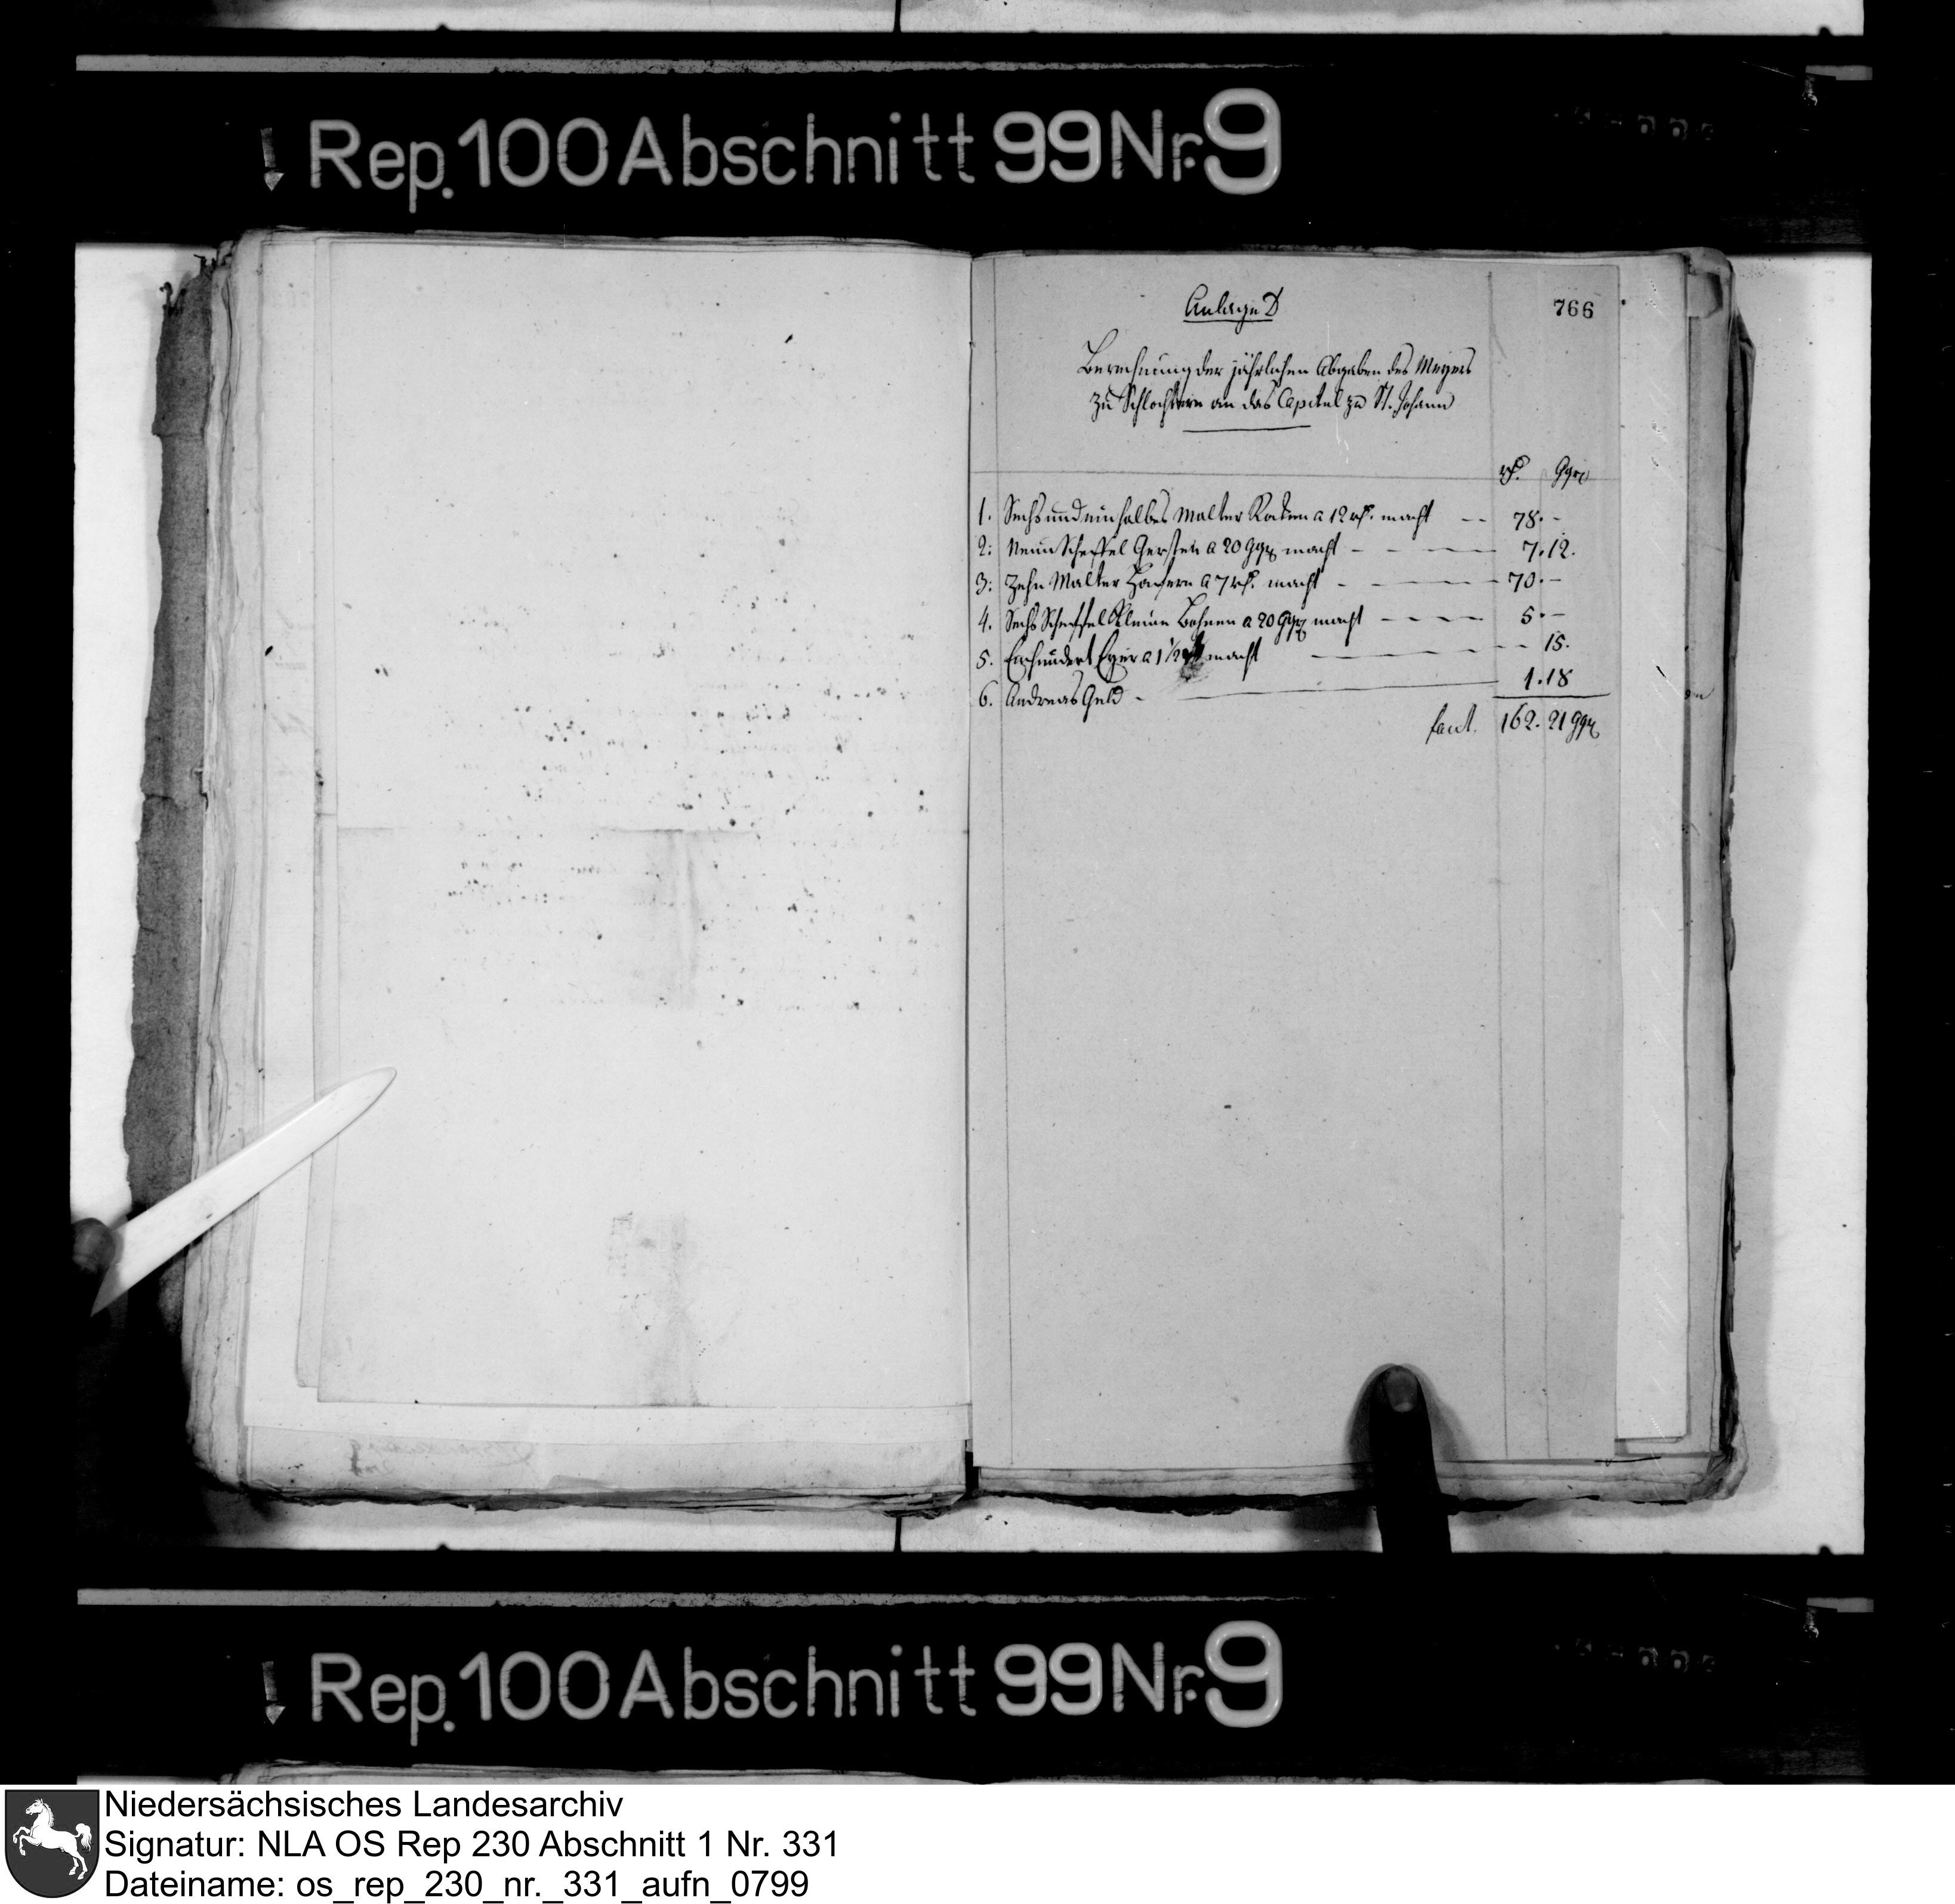 Rep. 100 Abschnitt 99 Nr. 9
766
Anlage D
Berechnung der jährlichen Abgaben des Meyers
zu Schlochtern an das Capitel zu St. Johann
rth. Ggr
1. Sechs und ein halbes Malter Rocken a 12 rth. macht -- 78. -
2: Neun Scheffel Gersten a 20 Ggr macht - - - - 7. 12.
3: Zehn Malter Hafern a 7 rth. macht - - - - 70. -
4. Sechs Scheffel kleine Bohnen a 20 Ggr macht - - - - 5. -
5. Einhundert Eyer a 1 1/2 macht - - - - 15.
6. Andreas Geld - 1. 18
facit. 162. 21 Ggr
Rep. 100 Abschnitt 99 Nr. 9
Niedersächsisches Landesarchiv
Signatur: NLA OS Rep 230 Abschnitt 1 Nr. 331
Dateiname: os_rep_230_nr._331_aufn_0799